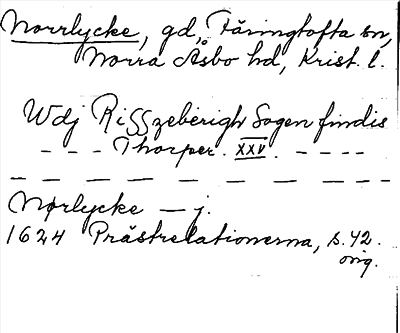 Norrlycke, gd, Färingtofta sn,
Norra Åsbo hd, Krist. l.
Wdj Risszeberigh Sogen findis
- - - Thorper. XXV. - - - -
— — — — — — — — —
Nørlycke — j.
1624 Prästrelationerna, s. 42.
orig.